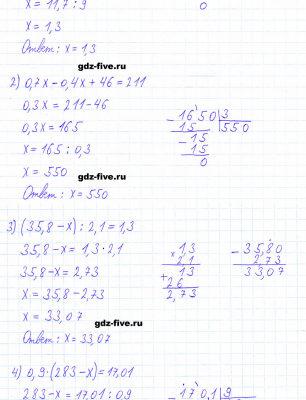 x = 11,7 : 9
0
x = 1,3
Ответ: x = 1,3
gdz-five.ru
2) 0,7x - 0,4x + 46 = 211
0,3x = 211 - 46
0,3x = 165
x = 165 : 0,3
x = 550
Ответ: x = 550
- 1650 3
15 550
- 15
15
0
gdz-five.ru
3) (35,8 - x) : 2,1 = 1,3
35,8 - x = 1,3 · 2,1
35,8 - x = 2,73
x = 35,8 - 2,73
x = 33,07
Ответ: x = 33,07
x 1,3
2,1
+ 13
26
2,73
- 35,80
2,73
33,07
gdz-five.ru
4) 0,9 · (283 - x) = 17,01
283 - x = 17,01 : 0,9
- 170,1 9